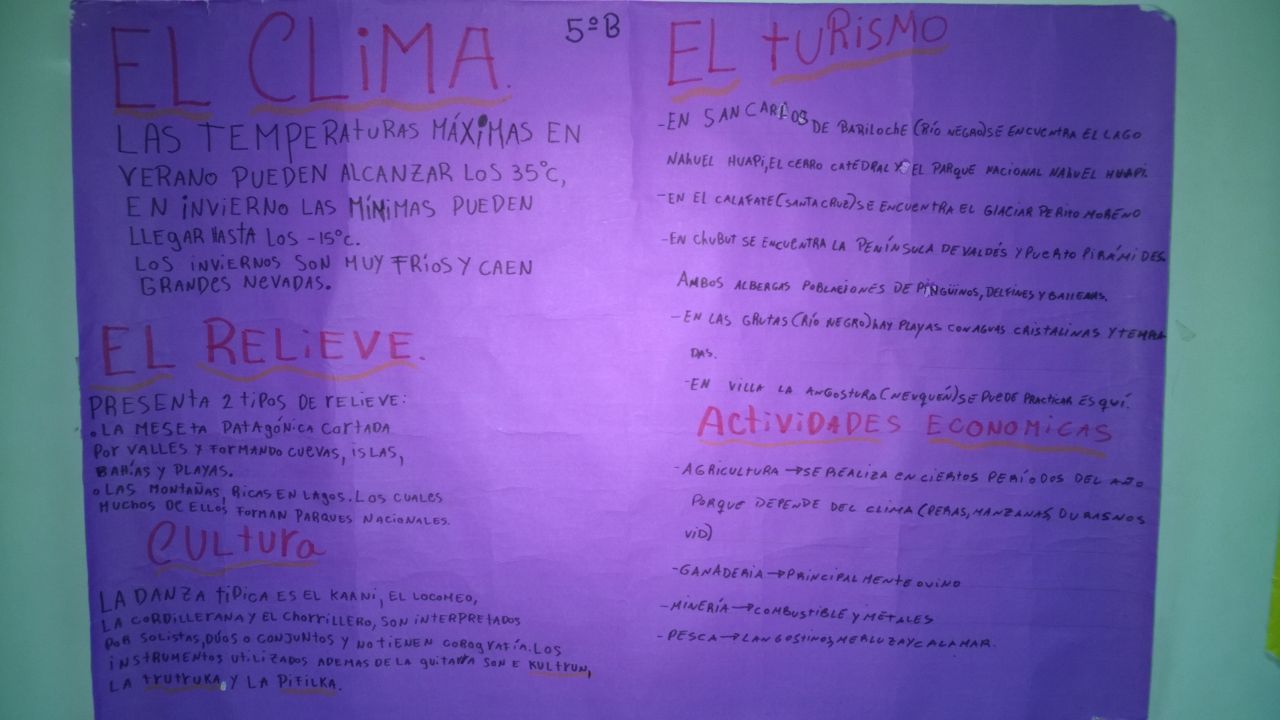 EL CLIMA.
LAS TEMPERATURAS MÁXIMAS EN
VERANO PUEDEN ALCANZAR LOS 35°C,
EN INVIERNO LAS MÍNIMAS PUEDEN
LLEGAR HASTA LOS -15°C.
LOS INVIERNOS SON MUY FRÍOS Y CAEN
GRANDES NEVADAS.
EL RELIEVE.
PRESENTA 2 TIPOS DE RELIEVE:
. LA MESETA PATAGÓNICA CORTADA
POR VALLES Y FORMANDO CUEVAS, ISLAS,
BAHÍAS Y PLAYAS.
. LAS MONTAÑAS, RICAS EN LAGOS. LOS CUALES
MUCHOS DE ELLOS FORMAN PARQUES NACIONALES.
CULTURA
LA DANZA TIPICA ES EL KAANI, EL LOCOMEO,
LA CORDILLERANA Y EL CHORRILLERO, SON INTERPRETADOS
POR SOLISTAS, DÚOS O CONJUNTOS Y NO TIENEN COROGRAFÍA. LOS
INSTRUMENTOS UTILIZADOS ADEMAS DE LA GUITARRA SON E KULTRUN,
LA TRUTRUKA, Y LA PIFILKA.
5º B
EL TURISMO
-EN SAN CARLOS DE BARILOCHE (RÍO NEGRO) SE ENCUENTRA EL LAGO
NAHUEL HUAPI, EL CERRO CATEDRAL Y EL PARQUE NACIONAL NAHUEL HUAPI.
-EN EL CALAFATE (SANTA CRUZ) SE ENCUENTRA EL GLACIAR PERITO MORENO
-EN CHUBUT SE ENCUENTRA LA PENÍNSULA DE VALDÉS Y PUERTO PIRÁMIDES.
AMBOS ALBERGAS POBLACIONES DE PINGÜINOS, DELFINES Y BALLENAS.
-EN LAS GRUTAS (RÍO NEGRO) HAY PLAYAS CON AGUAS CRISTALINAS Y TEMPLA
DAS.
-EN VILLA LA ANGOSTURA (NEUQUÉN) SE PUEDE PRACTICAR ESQUÍ.
ACTIVIDADES ECONOMICAS
-AGRICULTURA → SE REALIZA EN CIERTOS PERÍODOS DEL AÑO
PORQUE DEPENDE DEL CLIMA (PERAS, MANZANAS, DURASNOS
VID)
-GANADERIA → PRINCIPALMENTE OVINO
-MINERÍA → COMBUSTIBLE Y METALES
-PESCA → LANGOSTINOS, MERLUZA Y CALAMAR.